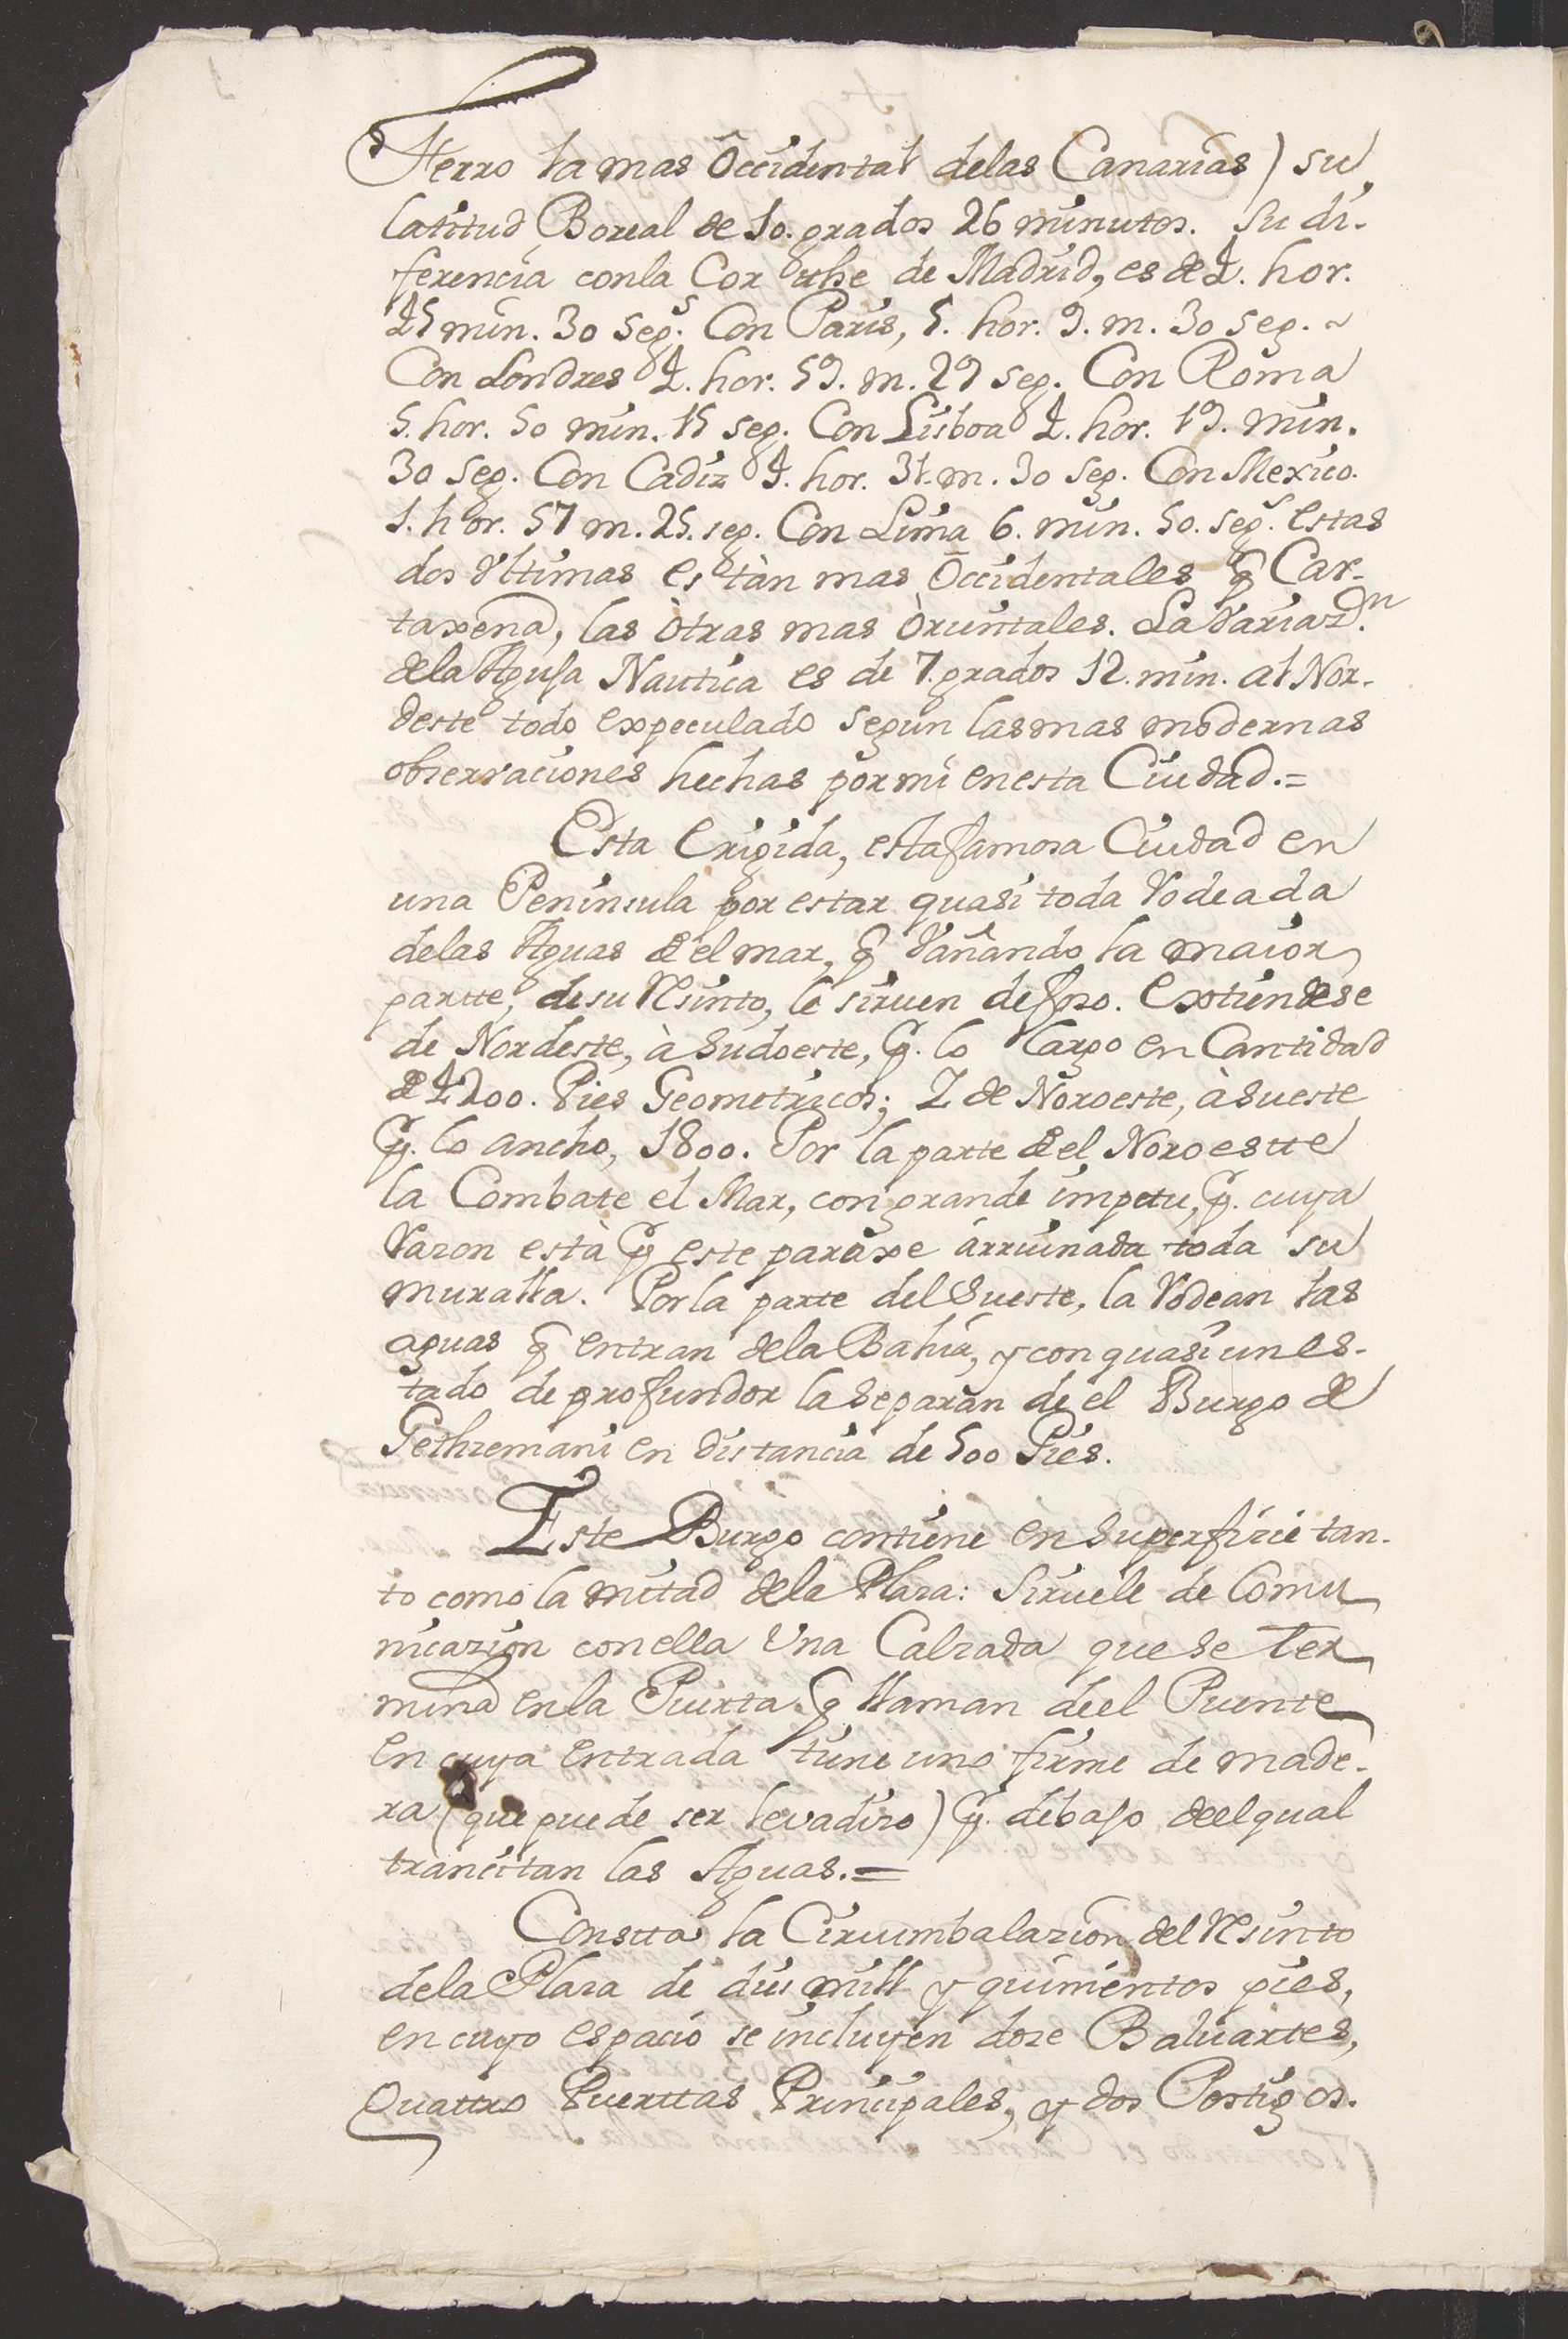 Fierro la mas Occidental delas Canarias) su
latitud Boreal de 10. grados 26 minutos. Su di-
ferencia conla Corthe de Madrid, es de 4. hor.
45 min. 30 segs. Con Paris, 5. hor. 9. m. 30 seg. ~
Con Londres 4. hor. 59. m. 29 seg. Con Roma
5. hor. 50 min. 15 seg. Con Lisboa 4. hor. 19. min.
30 seg. Con Cadiz 4. hor. 31. m. 30 seg. Con Mexico.
1. hor. 57 m. 25. seg. Con Lima 6. min. 50. segs. estas
dos Vltimas estàn mas Occidentales q̃ Car-
taxena, las òtras mas Òrientales. La Variazn.
dela Aguja Nautica es de 7. grados 12. min. al Nor-
deste todo expeculado segun lasmas modernas
observaciones hechas pormi enesta Ciudad.=
Esta Erigida, estafamosa Ciudad en
una Peninsula por estar quasi toda Rodeada
delas Aguas de el mar, q̃ Vañando la maior
partte, desu Resinto, le siruen defoso. Extiendese
de Nordeste, à Sudoeste, p̃. lo Largo en Cantidad
de 4200. Pies Geometricos; I de Noroeste, à Sueste
p̃. lo ancho, 1800. Por la parte de el Noroestte
la Combate el Mar, con grande impetu, p̃. cuya
Razon està p̃ este paraxe àrruinada toda su
muralla. Porla parte del Sueste, la Rodean las
aguas q̃ entran dela Bahia, y con quasi un es-
tado de profundor la separan de el Burgo de
Gethsemani en distancia de 500 Pies.
Este Burgo contiene en superfizie tan-
to como la mitad dela Plaza: Siruele de Comu
nicazion con ella Una Calzada que se ter
mina en la Puerta q̃ llaman de el Puente
en cuya entrada tiene uno firme de made-
ra (que puede ser levadizo) p̃. debajo de el qual
trancitan las Aguas.=
Constta la Circumbalazion del Resinto
dela Plaza de diez mill y quinientos pies,
en cuyo espacio se incluyen doze Baluartes,
Quattro Puerttas Principales, y dos Postigos.